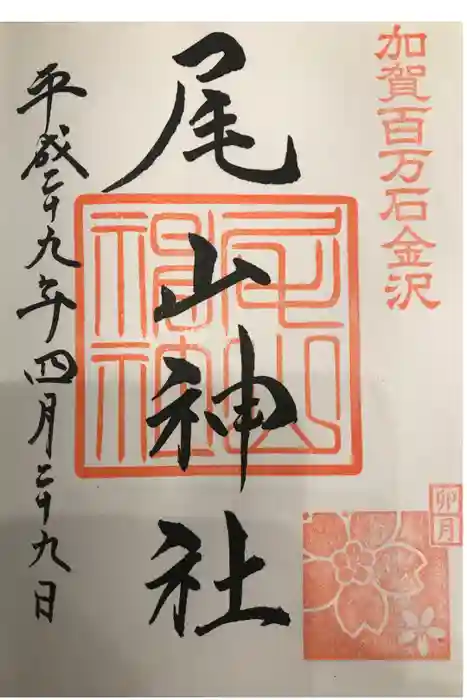 加賀百万石金沢
尾山神社
尾山神社
平成二十九年四月二十九日
卯月